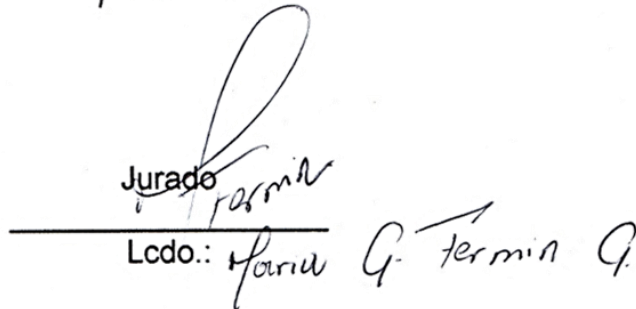 Jurado
Fermin
Lcdo.: Maria G. Fermin G.